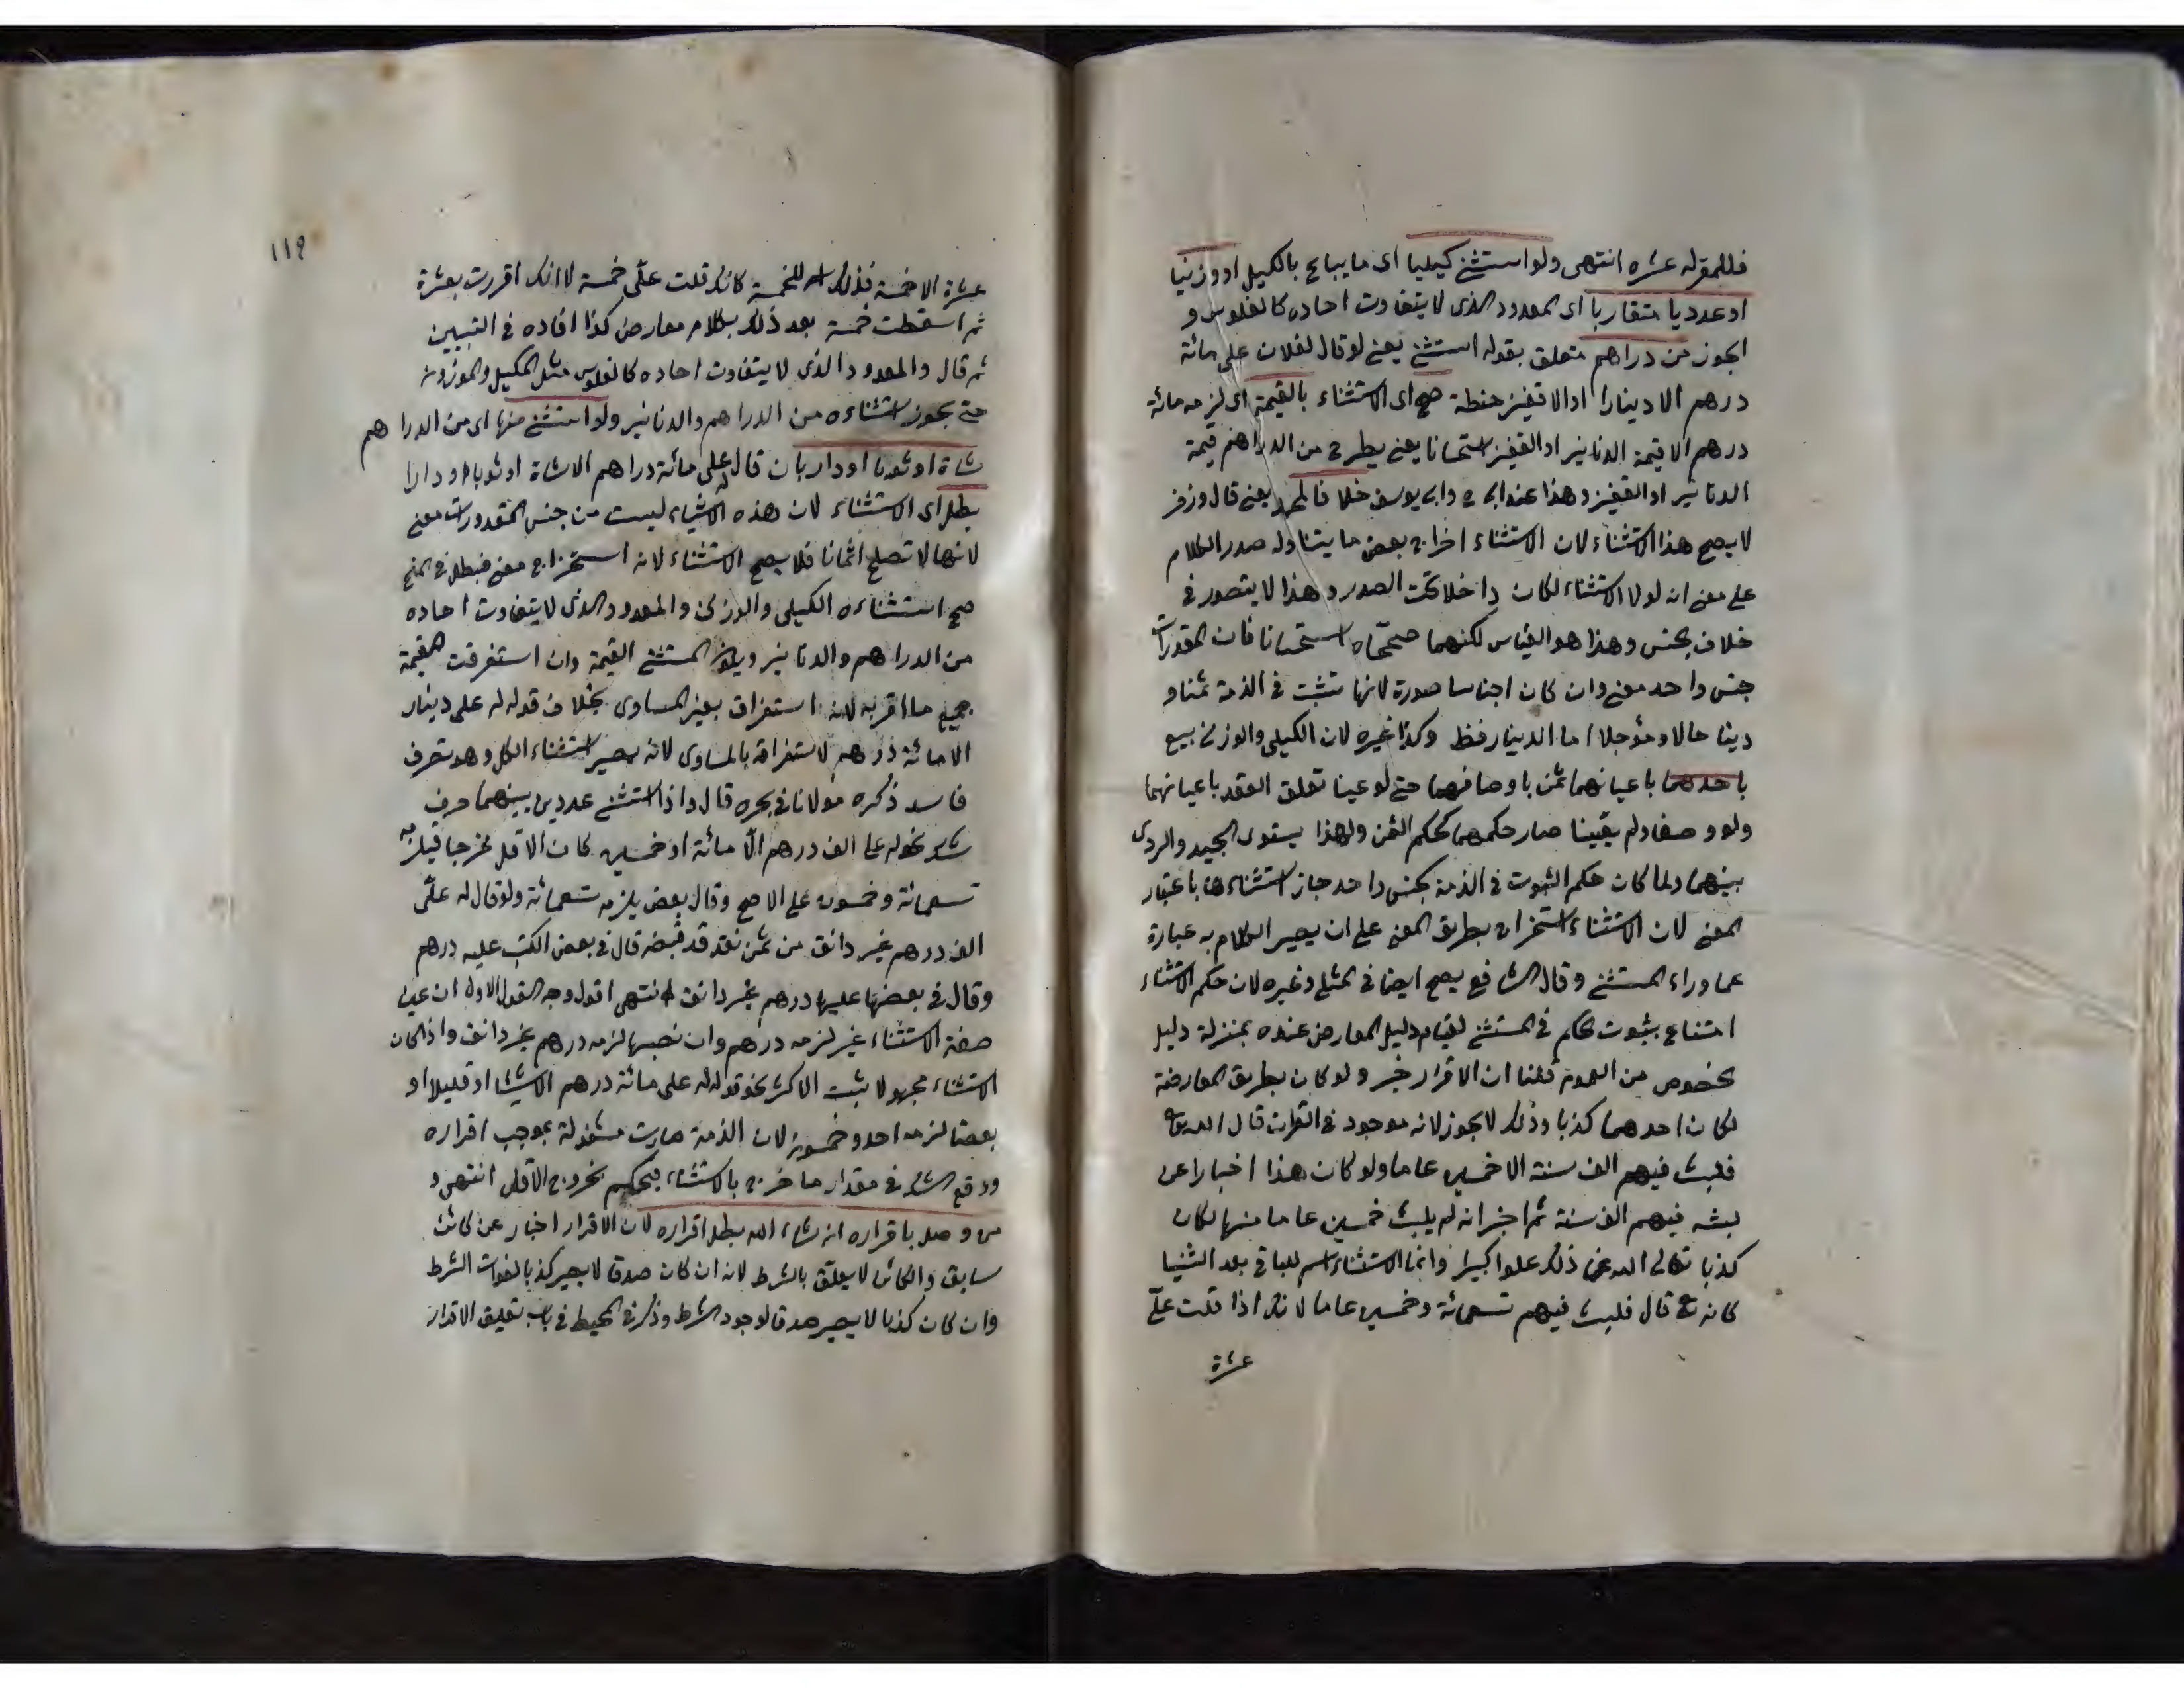 فللمقر له عشره انتهى ولو استثنى كيليا اى ما يباع بالكيل او وزنيا
او عدديا متقاربا اى المعدود الذى لا يتفاوت احاده كالفلوس و
الجوز من دراهم متعلق بقوله استثنى يعنى لو قال لفلان على مائة
درهم الا دينارا او الا قفيز حنطة صح اى الاستثناء بالقيمة اى لزمه مائة
درهم الا قيمة الدنانير او القفيز استحسانا يعنى يطرح من الدراهم قيمة
الدنانير او القفيز وهذا عند ابى ح وابى يوسف خلافا لمحمد يعنى قال وزفر
لا يصح هذا الاستثناء لان الاستثناء اخراج بعض ما يتناوله صدر الكلام
على معنى انه لولا الاستثناء لكان داخلا تحت الصدر وهذا لا يتصور فى
خلاف الجنس وهذا هو القياس لكنهما صححاه استحسانا فان المقدرات
جنس واحد معنى وان كان اجناسا صورة لانها تثبت فى الذمة ثمنا و
دينا حالا ومؤجلا اما الدينار فظ وكذا غيره لان الكيلى والوزنى بيع
باحدهما باعيانهما ثمن باوصافهما حتى لو عينا تعلق العقد باعيانهما
ولو وصفا ولم يعينا صار حكمهما كحكم الثمن ولهذا يستوى الجيد والردى
بينهما ولما كان حكم الثبوت فى الذمة كجنس واحد جاز استثناءها باعتبار
المعنى لان الاستثناء استخراج بطريق المعنى على ان يصير الكلام به عبارة
عما وراء المستثنى وقال الشافعى يصح ايضا فى المثلى وغيره لان حكم الاستثناء
امتناع ثبوت الحكم فى المستثنى لقيام دليل المعارض عنده بمنزلة دليل
الخصوص من العموم قلنا ان الاقرار خبر ولو كان بطريق المعارضة
لكان احدهما كذبا وذلك لا يجوز لانه موجود فى القران قال الله تع
فلبث فيهم الف سنة الا خمسين عاما ولو كان هذا اخبارا عن
لبثه فيهم الف سنة ثم اخبر انه لم يلبث خمسين عاما منها لكان
كذبا تعالى الله عن ذلك علوا كبيرا وانما الاستثناء اسم للباقى بعد الثنيا
كانه تع قال فلبث فيهم تسعمائة وخمسين عاما لانك اذا قلت علىّ
عشرة
١١٩
عشرة الا خمسة فذلك اسم للخمسة كانك قلت علىّ خمسة لا انك اقررت بعشرة
ثم اسقطت خمسة بعد ذلك بكلام معارض كذا افاده فى التبيين
ثم قال والمعدود الذى لا يتفاوت احاده كالفلوس مثل المكيل والموزون
حتى يجوز استثناءه من الدراهم والدنانير ولو استثنى منها اى من الدراهم
شاة او ثوبا او دار بان قال له على مائة دراهم الا شاة او ثوبا او دارا
بطل اى الاستثناء لان هذه الاشياء ليست من جنس المقدورات معنى
لانها لا تصلح اثمانا فلا يصح الاستثناء لانه استخراج معنى فبطل فى المنح
صح استثناءه الكيلى والوزنى والمعدود الذى لا يتفاوت احاده
من الدراهم والدنانير ويكون المستثنى القيمة وان استغرقت القيمة
جميع ما اقر به لانه استغراق بغير المساوى بخلاف قوله له على دينار
الا مائة درهم لاستغراقه بالمساوى لانه يصير استثناء الكل وهو تصرف
فاسد ذكره مولانا فى بحره قال واذا استثنى عددين بينهما حرف
شك نحو له على الف درهم الّا مائة او خمسين كان الاقل مخرجا فيلزمه
تسعمائة وخمسون على الاصح وقال بعض يلزمه تسعمائة ولو قال له علىّ
الف درهم غير دانق من ثمن نقد قد قبضه قال فى بعض الكتب عليه درهم
وقال فى بعضها عليها درهم غير دانق انتهى اقول وجه القول الاول ان عين
صفة الاستثناء غير لزمه درهم وان نصبها لزمه درهم غير دانق واذا كان
الاستثناء مجهولا يثبت الاكثر نحو قوله له على مائة درهم الا شيئا او قليلا او
بعضا لزمه احد وخمسون لان الذمة صارت مشغولة بموجب اقراره
ووقع الشك فى مقدار ما خرج بالاستثناء فيحكم بخروج الاقل انتهى و
من وصل باقراره ان شاء الله بطل اقراره لان الاقرار اخبار عن كائن
سابق والكائن لا يعلّق بالشرط لانه ان كان صدقا لا يصير كذبا لفوات الشرط
وان كان كذبا لا يصير صدقا لوجود الشرط وذكر فى المحيط فى باب تعليق الاقرار